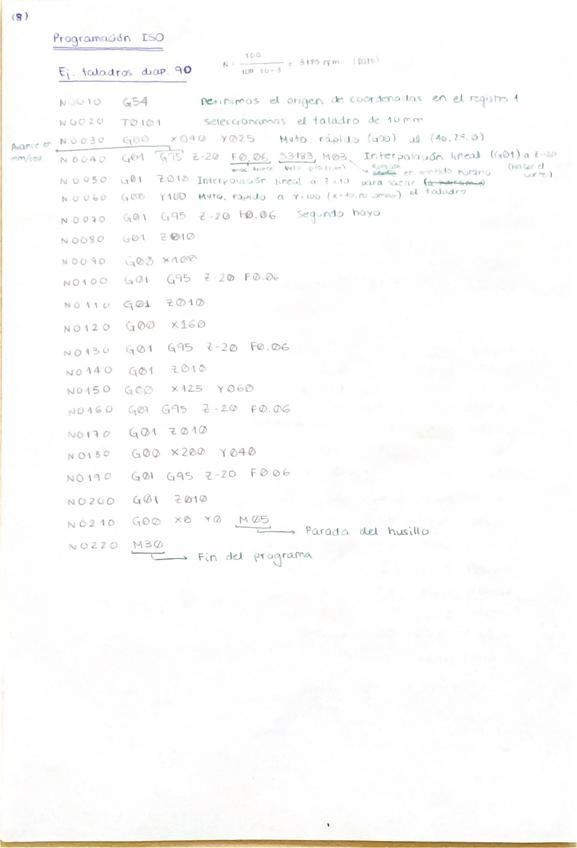 (8)
Programación ISO
Ej. taladros diap. 90
N = 100 / = 3183 rpm
N0010 G54 Definimos el origen de coordenadas en el registro 1
N0020 T0101 Seleccionamos el taladro de 10 mm
Avance en mm/rev
N0030 G00 X040 Y025 Mvto. rápido (G00) al (40,25,0)
N0040 G01 G95 Z-20 F0.06 S3183 M03 Interpolación lineal (G01) a Z-20
en sentido horario
N0050 G01 Z010 Interpolación lineal a Z=10 para sacar el taladro
N0060 G00 Y100 Mvto. rápido a Y=100
N0070 G01 G95 Z-20 F0.06 Segundo hoyo
N0080 G01 Z010
N0090 G00 X100
N0100 G01 G95 Z-20 F0.06
N0110 G01 Z010
N0120 G00 X160
N0130 G01 G95 Z-20 F0.06
N0140 G01 Z010
N0150 G00 X125 Y060
N0160 G01 G95 Z-20 F0.06
N0170 G01 Z010
N0180 G00 X200 Y040
N0190 G01 G95 Z-20 F0.06
N0200 G01 Z010
N0210 G00 X0 Y0 M05
Parada del husillo
N0220 M30
Fin del programa